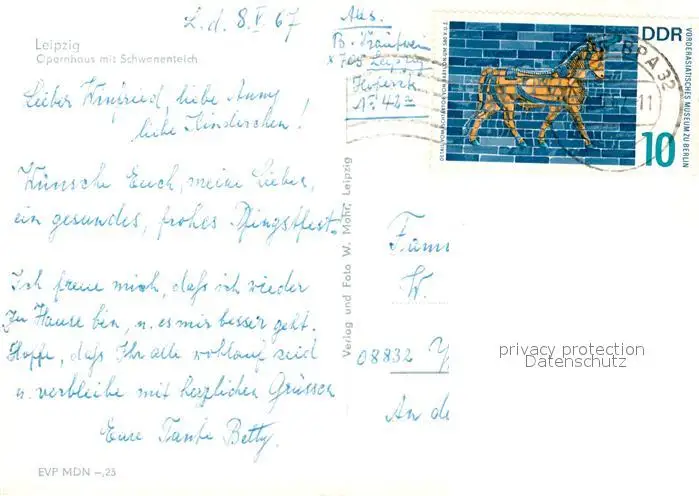 L. d. 8. V. 67
Leipzig
Opernhaus mit Schwanenteich
Lieber Winfried, liebe Anny
liebe Kinderchen!
Wünsche Euch, meine Lieben,
ein gesundes, frohes Pfingstfest.
Ich freue mich, daß ich wieder
zu Hause bin, u. es mir besser geht.
Hoffe, daß Ihr alle wohlauf seid
u. verbleibe mit herzlichen Grüssen
Eure Tante Betty.
EVP MDN –,25
Verlag und Foto W. Mohr, Leipzig
Abs.
B.
705 Leipzig
Nr. 42
DDR
10
VORDERASIATISCHES MUSEUM ZU BERLIN
Fam
W.
08832
An de
privacy protection
Datenschutz